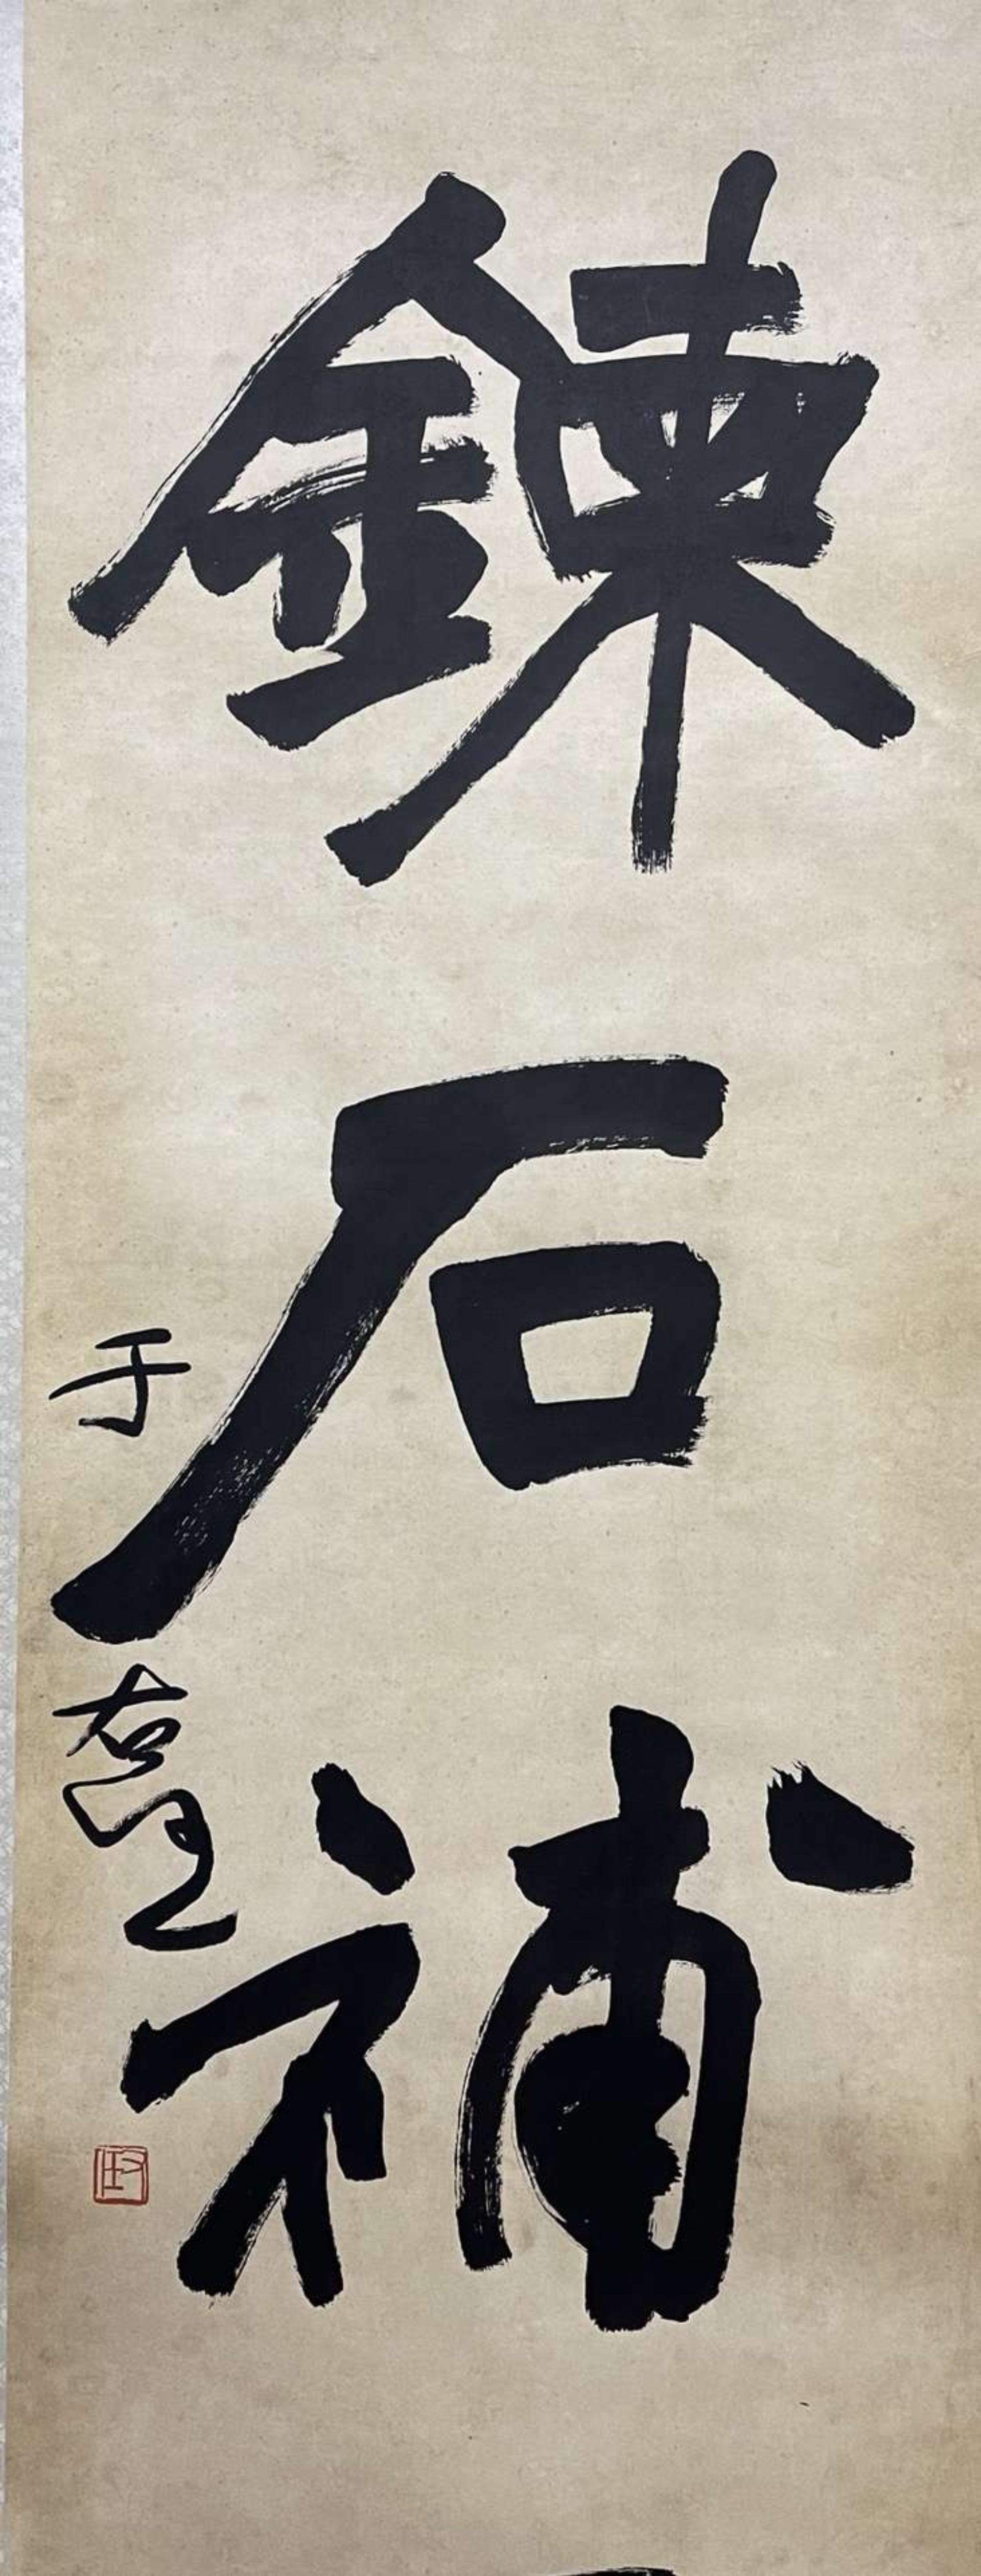 鍊石補
于右任